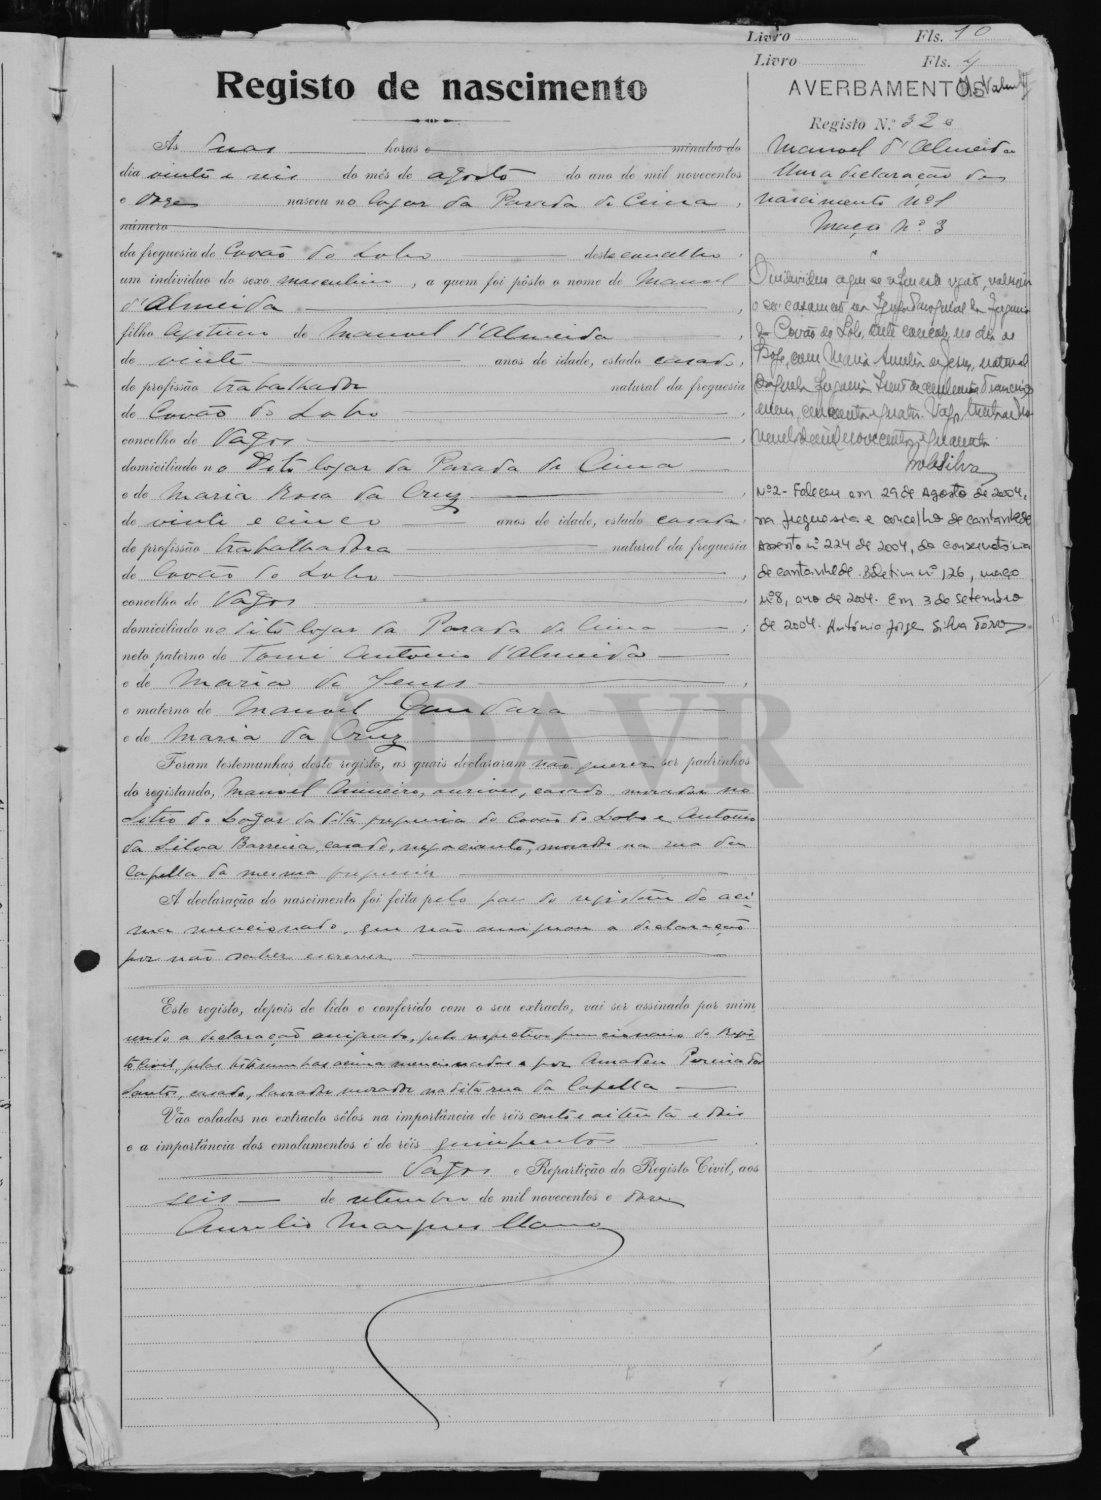 Livro Fls. 10
Livro Fls. 4
Registo de nascimento
AVERBAMENTOS
Registo N.º 32
Manoel d'Almeida
Uma declaração de
nascimento nº 1
Maço nº 3
Ás duas horas e minutos do
dia vinte e seis do mês de agosto do ano de mil novecentos
e doze nasceu no logar da Parada de Cima,
número
da freguesia de Covão do Lobo deste concelho
um indivíduo do sexo masculino, a quem foi pôsto o nome de Manoel
d'Almeida
filho legitimo de Manoel d'Almeida
de vinte anos de idade, estado casado,
de profissão trabalhador natural da freguesia
de Covão do Lobo,
concelho de Vagos,
domiciliado no dito logar da Parada de Cima
e de Maria Rosa da Cruz,
de vinte e cinco anos de idade, estado casada
de profissão trabalhadora natural da freguesia
de Covão do Lobo,
concelho de Vagos,
domiciliado no dito logar da Parada de Cima;
neto paterno de Tomé Antonio d'Almeida
e de Maria de Jesus,
e materno de Manoel Gandara
e de Maria da Cruz
Foram testemunhas deste registo, as quais declararam não querer ser padrinhos
do registando, Manoel casado, morador no
sitio do Logar da dita freguesia de Covão do Lobo e Antonio
da Silva Barreira, casado, negociante, morador na rua da
Capella da mesma freguesia
A declaração do nascimento foi feita pelo pae do registando aci-
ma mencionado, que não assignou a declaração
por não saber escrever
Este registo, depois de lido e conferido com o seu extracto, vai ser assinado por mim,
sendo a declaração assignada, pelo respectivo funcionario do Regis-
to Civil, pelas testemunhas acima mencionadas e por Amadeu Pereira dos
Santos, casado, lavrador morador na dita rua da Capella
Vão colados no extracto sêlos na importância de réis cento e oitenta e dois
e a importância dos emolumentos é de réis quinhentos
Vagos e Repartição do Registo Civil, aos
seis de setembro de mil novecentos e doze
Aurelio Marques Mano
O individuo a que se refere
o seu casamento na Igreja Paroquial da freguesia
de Covão do Lobo, deste concelho, no dia
com Maria de Jesus, natural
daquela freguesia
Vagos,
de mil novecentos e quarenta
Silva
Nº2 - Faleceu em 29 de Agosto de 2004,
na freguesia e concelho de Cantanhede
Assento nº 224 de 2004, da Conservatória
de Cantanhede. Boletim nº 126, maço
nº8, ano de 2004. Em 3 de Setembro
de 2004. António Jorge Silva
ADAVR